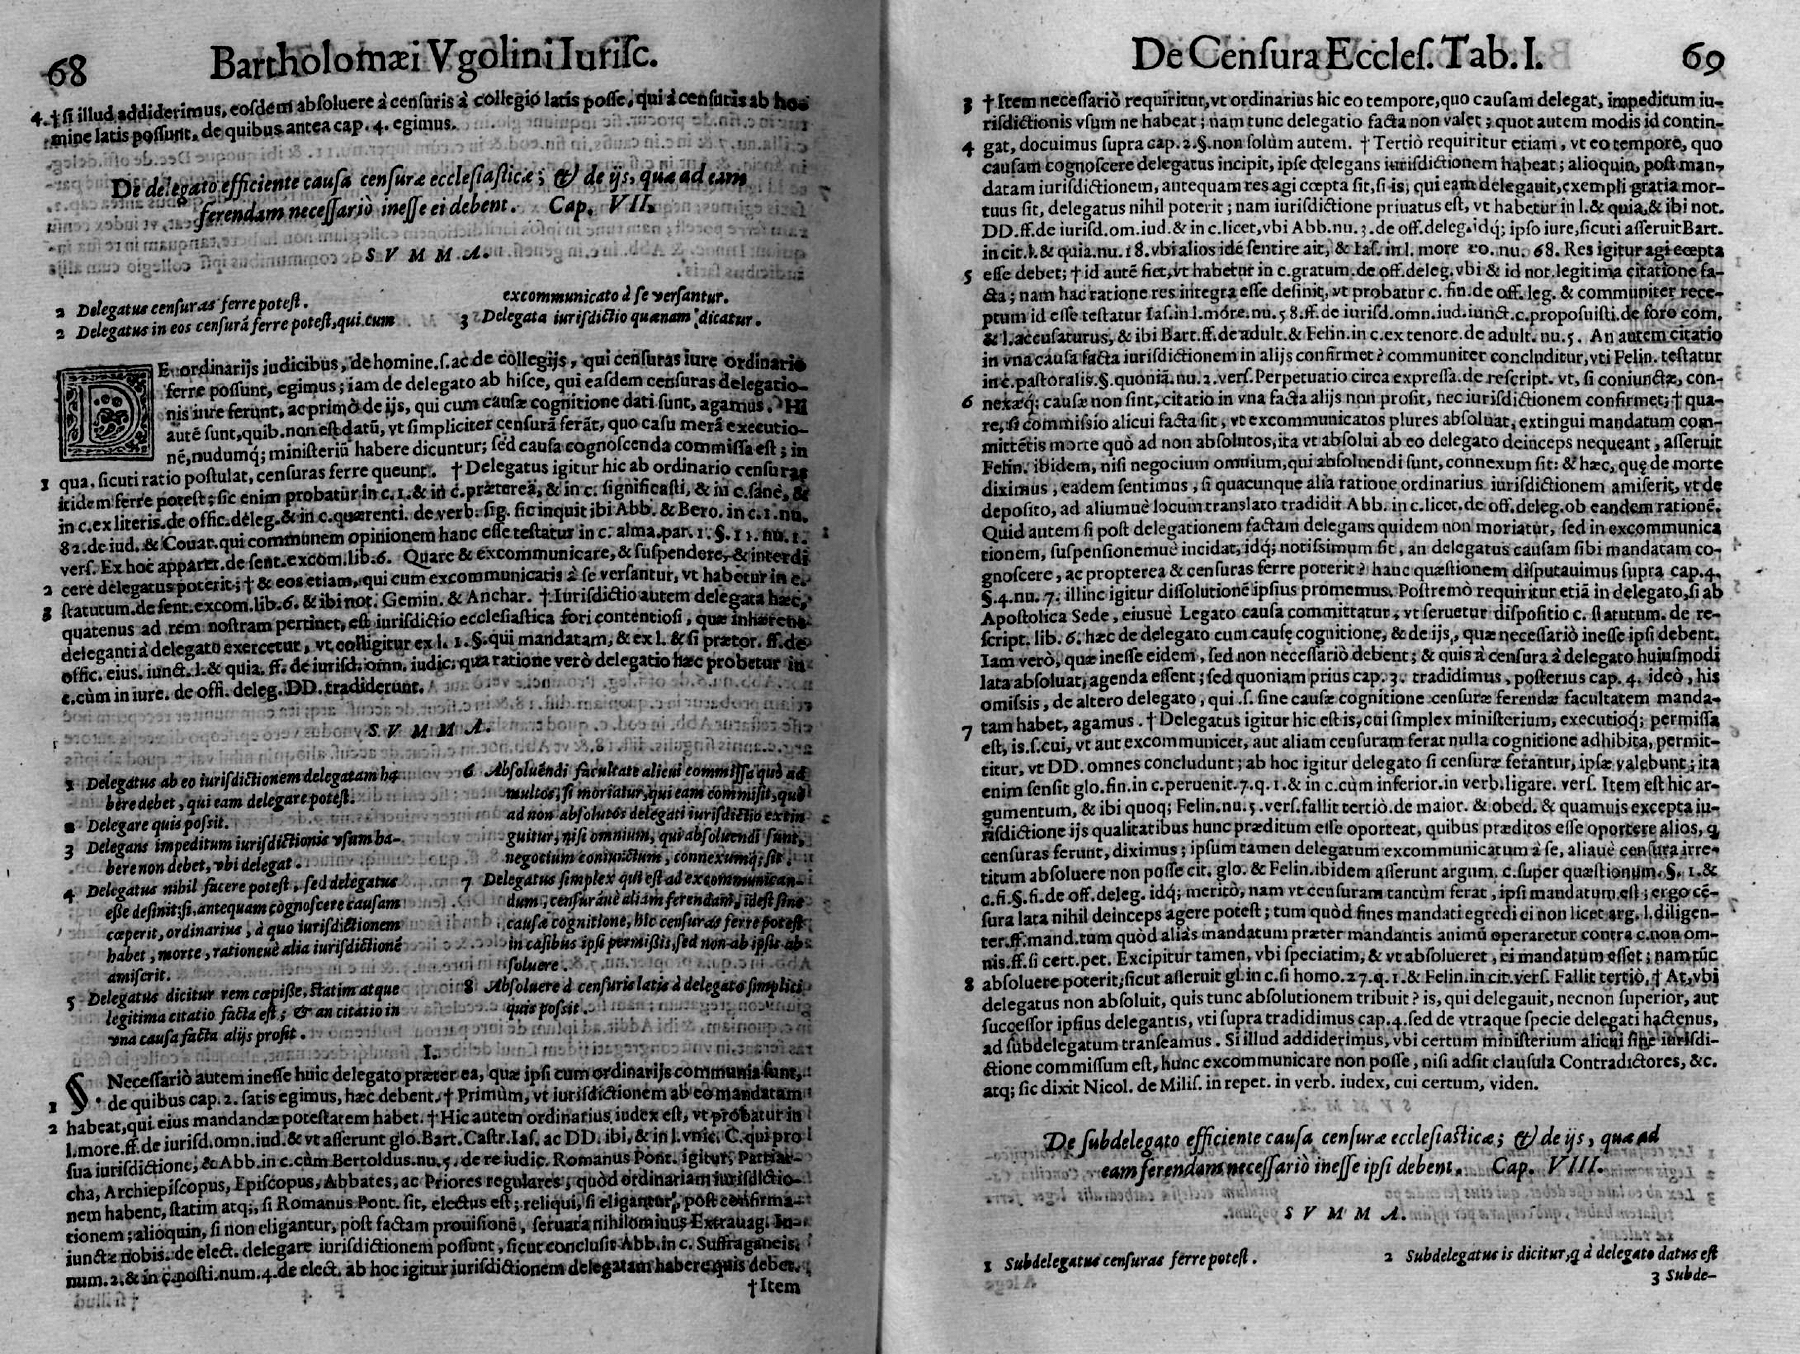 68
Bartholomæi Vgolini Iurisc.
4 †si illud addiderimus, eosdem absoluere à censuris à collegio latis posse, qui à censuris ab ho-
mine latis possunt, de quibus antea cap. 4. egimus.
De delegato efficiente causa censuræ ecclesiasticæ; & de ijs, quæ ad eam
ferendam necessariò inesse ei debent. Cap. VII.
SVMMA.
2 Delegatus censuras ferre potest.
2 Delegatus in eos censurā ferre potest, qui cum
excommunicato à se versantur.
3 Delegata iurisdictio quænam dicatur.
DE ordinarijs iudicibus, de homine.s.ac de collegijs, qui censuras iure ordinario
ferre possunt, egimus; iam de delegato ab hisce, qui easdem censuras delegatio-
nis iure ferunt, ac primò de ijs, qui cum causæ cognitione dati sunt, agamus. Hi
autē sunt, quib.non est datū, vt simpliciter censurā ferāt, quo casu merā executio-
nē, nudumq; ministeriū habere dicuntur; sed causa cognoscenda commissa est; in
1 qua, sicuti ratio postulat, censuras ferre queunt. †Delegatus igitur hic ab ordinario censuras
itidem ferre potest; sic enim probatur in c.1.& in c.præterea, & in c. significasti, & in c.sanè, &
in c.ex literis.de offic.deleg.& in c.quærenti. de verb. sig. sic inquit ibi Abb. & Bero. in c.1.nu.
82.de iud. & Couar.qui communem opinionem hanc esse testatur in c. alma.par.1. §.11.nu.1.
vers. Ex hoc apparet.de sent.excom.lib.6. Quare & excommunicare, & suspendere, & interdi
2 cere delegatus poterit; † & eos etiam, qui cum excommunicatis à se versantur, vt habetur in c.
3 statutum.de sent.excom.lib.6. & ibi not. Gemin. & Anchar. †Iurisdictio autem delegata hæc,
quatenus ad rem nostram pertinet, est iurisdictio ecclesiastica fori contentiosi, quæ inhærens
deleganti à delegato exercetur, vt colligitur ex l. 1. §.qui mandatam, & ex l. & si prætor. ff.de
offic. eius. iunct. l.& quia. ff. de iurisd. omn. iudic. qua ratione verò delegatio hæc probetur in
c.cùm in iure. de offi. deleg. DD. tradiderunt.
SVMMA.
1 Delegatus ab eo iurisdictionem delegatam ha
bere debet, qui eam delegare potest.
2 Delegare quis possit.
3 Delegans impeditum iurisdictionis vsum ha-
bere non debet, vbi delegat.
4 Delegatus nihil facere potest, sed delegatus
esse desinit; si, antequam cognoscere causam
cœperit, ordinarius, à quo iurisdictionem
habet, morte, rationeuè alia iurisdictionē
amiserit.
5 Delegatus dicitur rem cœpisse, statim atque
legitima citatio facta est; & an citatio in
vna causa facta alijs prosit.
6 Absoluēdi facultate alicui commissa quò ad
multos, si moriatur, qui eam commisit, quò
ad non absolutos delegati iurisdictio extin
guitur, nisi omnium, qui absoluendi sunt,
negocium coniunctum, connexumq; sit.
7 Delegatus simplex qui est ad excommunican-
dum, censuràuè aliam ferendam, idest sine
causæ cognitione, hic censuras ferre potest
in casibus ipsi permissis, sed non ab ipsis ab
soluere.
8 Absoluere à censuris latis à delegato simplici
quis possit.
I.
§. Necessariò autem inesse huic delegato præter ea, quæ ipsi cum ordinarijs communia sunt,
1 de quibus cap. 2. satis egimus, hæc debent. †Primùm, vt iurisdictionem ab eo mandatam
2 habeat, qui eius mandandæ potestatem habet. †Hic autem ordinarius iudex est, vt probatur in
l.more.ff.de iurisd.omn.iud.& vt asserunt glo.Bart.Castr.Ias. ac DD. ibi, & in l.vnic. C.qui pro
sua iurisdictione, & Abb.in c.cùm Bertoldus.nu.5. de re iudic. Romanus Pont. igitur, Patriar-
cha, Archiepiscopus, Episcopus, Abbates, ac Priores regulares, quòd ordinariam iurisdictio-
nem habent, statim atq;, si Romanus Pont. sit, electus est; reliqui, si eligantur, post confirma-
tionem; alioquin, si non eligantur, post factam prouisionē, seruata nihilominus Extrauag. In-
iunctæ nobis. de elect. delegare iurisdictionem possunt, sicut conclusit Abb.in c. Suffraganeis.
num. 2.& in c.nosti.num.4.de elect. ab hoc igitur iurisdictionem delegatam habere quis debet.
†Item
De Censura Eccles. Tab. I.
69
3 †Item necessariò requiritur, vt ordinarius hic eo tempore, quo causam delegat, impeditum iu-
risdictionis vsum ne habeat; nam tunc delegatio facta non valet; quot autem modis id contin-
4 gat, docuimus supra cap.2.§.non solùm autem. †Tertiò requiritur etiam, vt eo tempore, quo
causam cognoscere delegatus incipit, ipse delegans iurisdictionem habeat; alioquin, post man-
datam iurisdictionem, antequam res agi cœpta sit, si is, qui eam delegauit, exempli gratia mor-
tuus sit, delegatus nihil poterit; nam iurisdictione priuatus est, vt habetur in l.& quia.& ibi not.
DD.ff.de iurisd.om.iud.& in c.licet, vbi Abb.nu.3.de off.deleg.idq; ipso iure, sicuti asseruit Bart.
in cit.l.& quia.nu.18.vbi alios idē sentire ait, & Ias.in l. more 10.nu. 68. Res igitur agi cœpta
5 esse debet; †id autē fiet, vt habetur in c.gratum.de off.deleg.vbi & id not.legitima citatione fa-
cta; nam hac ratione res integra esse desinit, vt probatur c. fin.de off. leg. & communiter rece-
ptum id esse testatur Ias.in l.more.nu.58.ff.de iurisd.omn.iud.iunct.c.proposuisti.de foro com.
& l.accusaturus, & ibi Bart.ff.de adult.& Felin.in c.ex tenore.de adult. nu.5. An autem citatio
in vna causa facta iurisdictionem in alijs confirmet? communiter concluditur, vti Felin. testatur
in c.pastoralis.§.quoniā.nu.2.vers.Perpetuatio circa expressa.de rescript. vt, si coniunctæ, con-
6 nexæq; causæ non sint, citatio in vna facta alijs non prosit, nec iurisdictionem confirmet; †qua-
re, si commissio alicui facta sit, vt excommunicatos plures absoluat, extingui mandatum com-
mittētis morte quò ad non absolutos, ita vt absolui ab eo delegato deinceps nequeant, asseruit
Felin. ibidem, nisi negocium omnium, qui absoluendi sunt, connexum sit: & hæc, quę de morte
diximus, eadem sentimus, si quacunque alia ratione ordinarius iurisdictionem amiserit, vt de
deposito, ad aliumuè locum translato tradidit Abb. in c.licet. de off.deleg.ob eandem rationē.
Quid autem si post delegationem factam delegans quidem non moriatur, sed in excommunica
tionem, suspensionemuè incidat, idq; notissimum sit, an delegatus causam sibi mandatam co-
gnoscere, ac propterea & censuras ferre poterit? hanc quæstionem disputauimus supra cap.4.
§.4.nu. 7. illinc igitur dissolutionē ipsius promemus. Postremò requiritur etiā in delegato, si ab
Apostolica Sede, eiusuè Legato causa committatur, vt seruetur dispositio c. statutum. de re-
script. lib. 6. hæc de delegato cum causę cognitione, & de ijs, quæ necessariò inesse ipsi debent.
Iam verò, quæ inesse eidem, sed non necessariò debent; & quis à censura à delegato huiusmodi
lata absoluat, agenda essent; sed quoniam prius cap.3. tradidimus, posterius cap. 4. ideò, his
omissis, de altero delegato, qui .s. sine causæ cognitione censuræ ferendæ facultatem manda-
7 tam habet, agamus. †Delegatus igitur hic est is, cui simplex ministerium, executioq; permissa
est, is.s.cui, vt aut excommunicet, aut aliam censuram ferat nulla cognitione adhibita, permit-
titur, vt DD. omnes concludunt; ab hoc igitur delegato si censuræ ferantur, ipsæ valebunt; ita
enim sensit glo.fin.in c.peruenit.7.q.1.& in c.cùm inferior.in verb.ligare. vers. Item est hic ar-
gumentum, & ibi quoq; Felin.nu.5.vers.fallit tertiò.de maior.& obed. & quamuis excepta iu-
risdictione ijs qualitatibus hunc præditum esse oporteat, quibus præditos esse oportere alios, q
censuras ferunt, diximus; ipsum tamen delegatum excommunicatum à se, aliauè censura irre-
titum absoluere non posse cit. glo. & Felin.ibidem asserunt argum. c.super quæstionum. §. 1.&
c.fi.§.fi.de off.deleg. idq; meritò, nam vt censuram tantùm ferat, ipsi mandatum est; ergo cē-
sura lata nihil deinceps agere potest; tum quòd fines mandati egredi ei non licet arg.l.diligen-
ter.ff.mand.tum quòd aliàs mandatum præter mandantis animū operaretur contra c.non om-
nis.ff.si cert.pet. Excipitur tamen, vbi speciatim, & vt absolueret, ei mandatum esset; nam tūc
8 absoluere poterit; sicut asseruit gl.in c.si homo.27.q.1.& Felin.in cit.vers. Fallit tertiò, † At, vbi
delegatus non absoluit, quis tunc absolutionem tribuit? is, qui delegauit, necnon superior, aut
successor ipsius delegantis, vti supra tradidimus cap.4.sed de vtraque specie delegati hactenus,
ad subdelegatum transeamus. Si illud addiderimus, vbi certum ministerium alicui sine iurisdi-
ctione commissum est, hunc excommunicare non posse, nisi adsit clausula Contradictores, &c.
atq; sic dixit Nicol. de Milis. in repet. in verb. iudex, cui certum, viden.
De subdelegato efficiente causa censuræ ecclesiasticæ; & de ijs, quæ ad
eam ferendam necessariò inesse ipsi debent. Cap. VIII.
SVMMA.
1 Subdelegatus censuras ferre potest.
2 Subdelegatus is dicitur, q à delegato datus est
3 Subde-